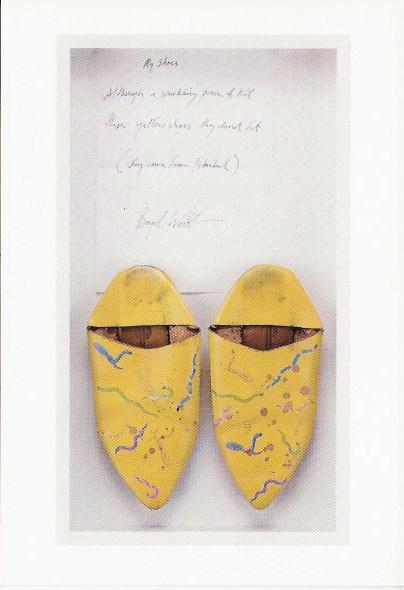 My Shoes
Although a sparkling piece of kit
these yellow shoes they do not fit
(they came from Istanbul)
Boyd Webb